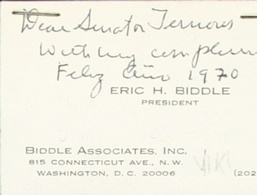 Dear Senator
With my
Feliz Año 1970
ERIC H. BIDDLE
PRESIDENT
BIDDLE ASSOCIATES, INC.
815 CONNECTICUT AVE., N.W.
WASHINGTON, D.C. 20006 (202